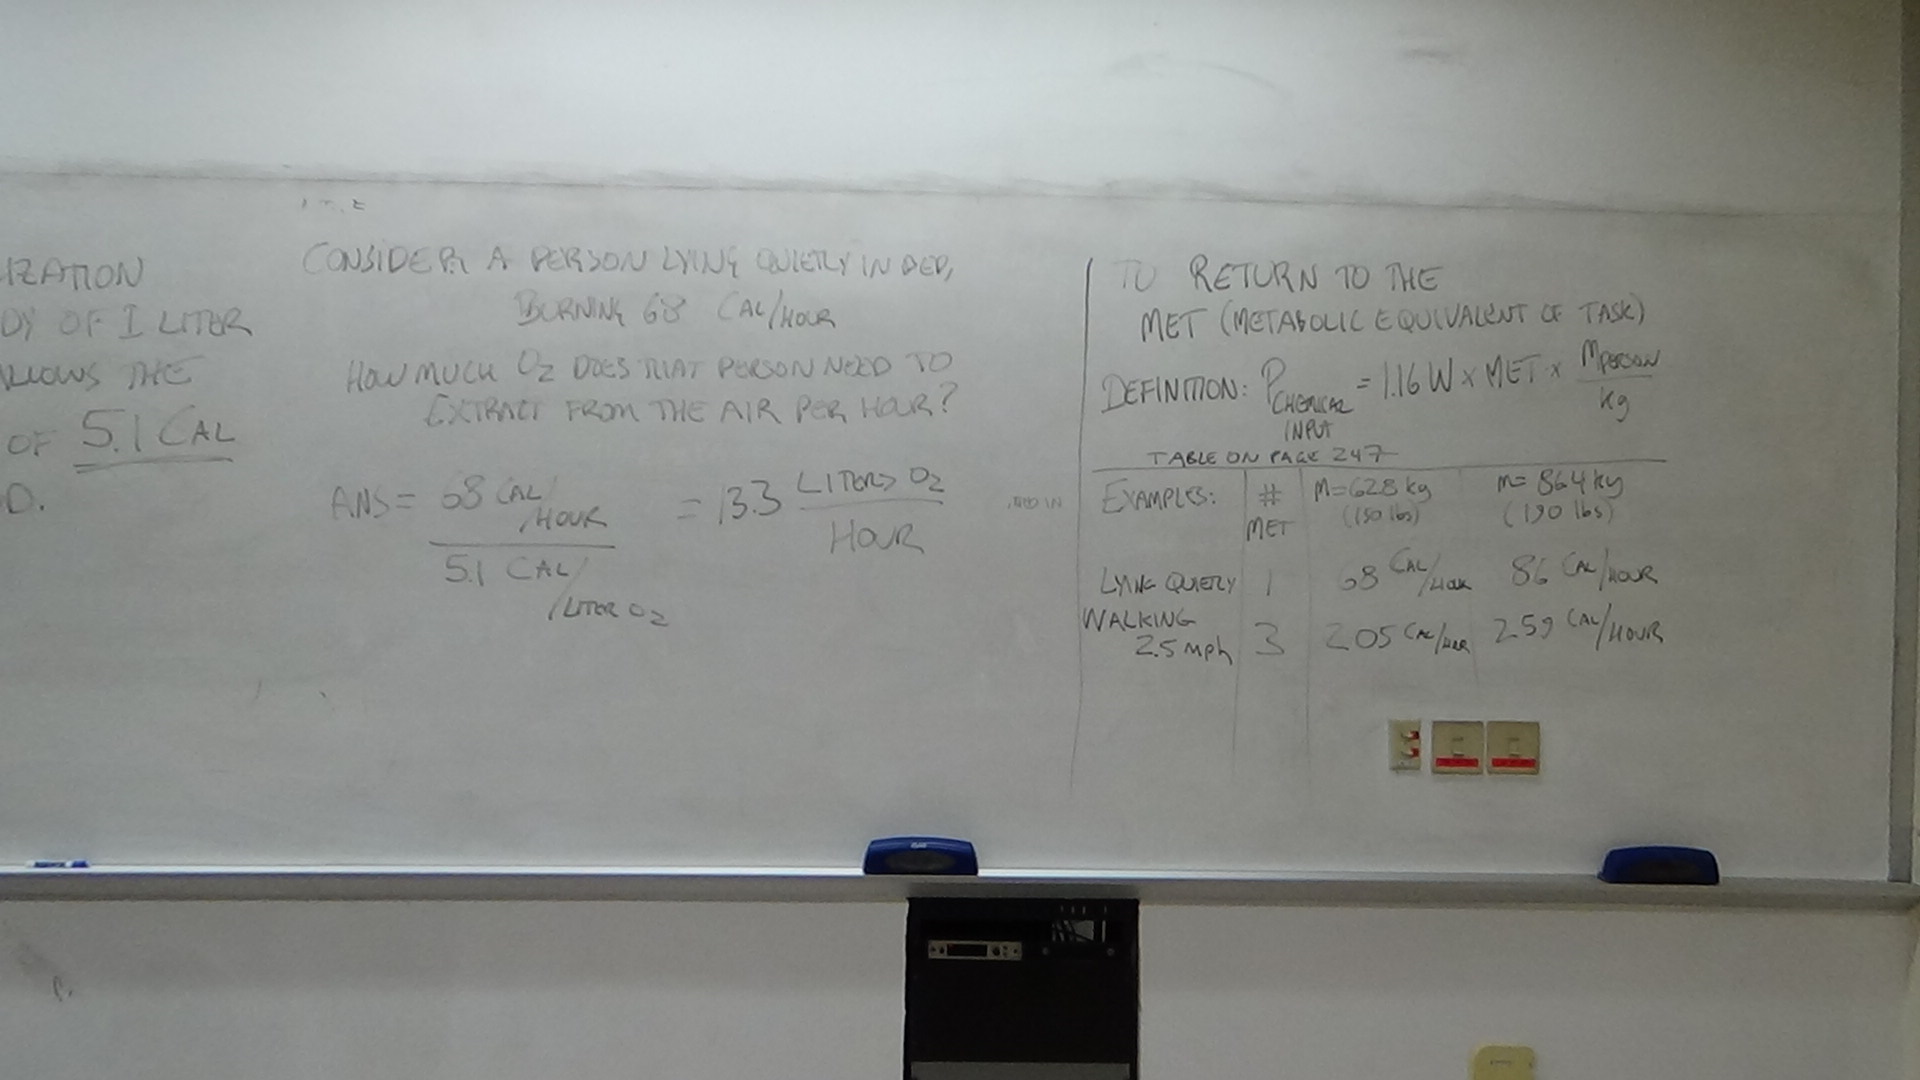 IZATION
DY OF 1 LITER
ALLOWS THE
OF 5.1 CAL
D.
CONSIDER A PERSON LYING QUIETLY IN BED,
BURNING 68 CAL/HOUR
HOW MUCH O2 DOES THAT PERSON NEED TO
EXTRACT FROM THE AIR PER HOUR?
ANS = 68 CAL/HOUR / 5.1 CAL/LITER O2 = 13.3 LITERS O2 / HOUR
TO RETURN TO THE
MET (METABOLIC EQUIVALENT OF TASK)
DEFINITION: P CHEMICAL INPUT = 1.16 W x MET x M PERSON / kg
TABLE ON PAGE 247
EXAMPLES: # MET M=62.8 kg (150 lbs) m= 86.4 kg (190 lbs)
LYING QUIETLY 1 68 CAL/HOUR 86 CAL/HOUR
WALKING
2.5 mph 3 205 CAL/HOUR 259 CAL/HOUR